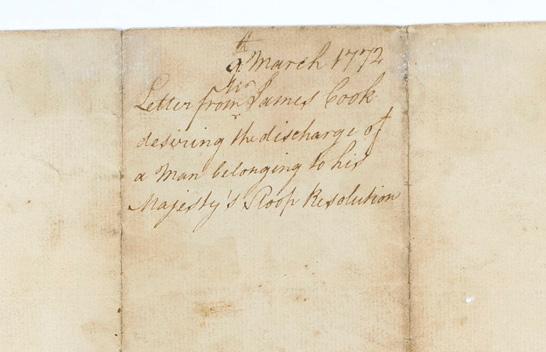 9th March 1772
Letter from Mr James Cook
desiring the discharge of
a Man belonging to his
Majesty's Sloop Resolution